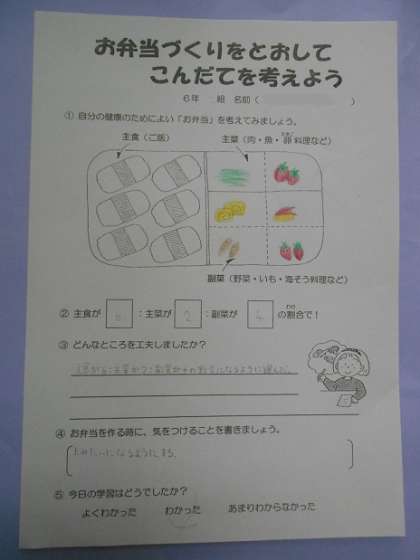 お弁当づくりをとおして
こんだてを考えよう
6年 組 名前（ ）
① 自分の健康のためによい「お弁当」を考えてみましょう。
主食（ご飯） 主菜（肉・魚・卵料理など）
副菜（野菜・いも・海そう料理など）
② 主食が ：主菜が 2 ：副菜が の割合で！
③ どんなところを工夫しましたか？
④ お弁当を作る時に、気をつけることを書きましょう。
になるようにする。
⑤ 今日の学習はどうでしたか？
よくわかった わかった あまりわからなかった